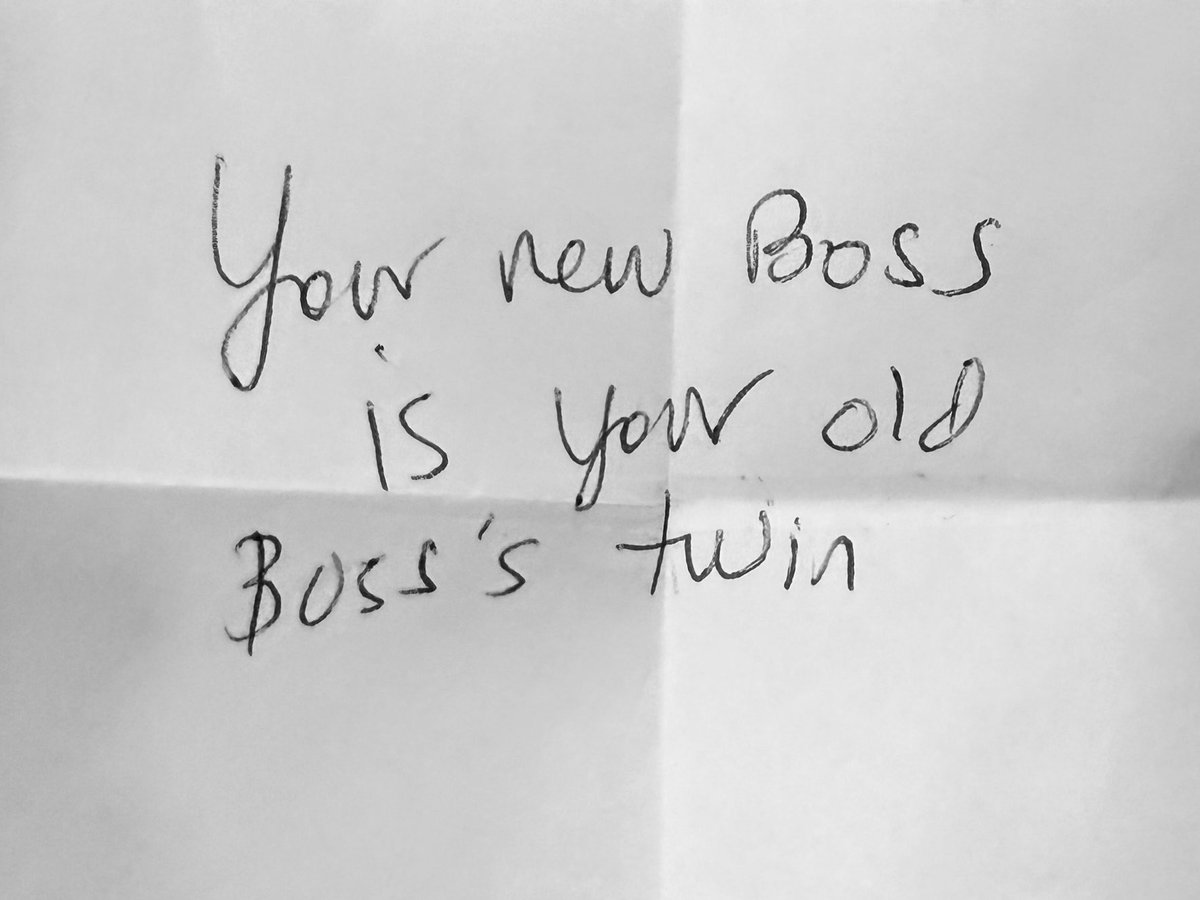 Your new Boss
is your old
Boss's twin